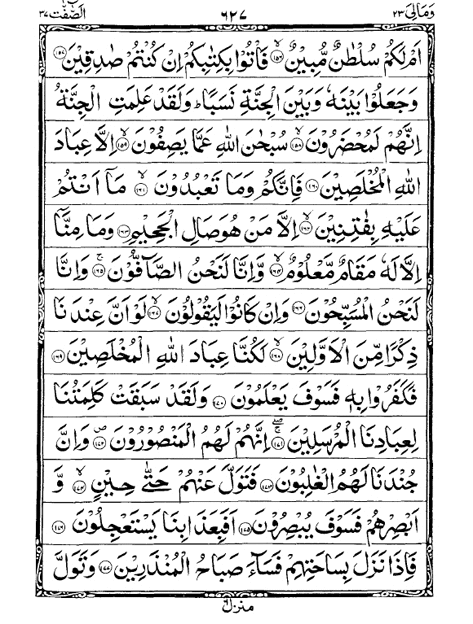 وَمَالِیَ ٢٣ ٦٢٧ الصّٰٓفّٰت ٣٧
اَمْ لَكُمْ سُلْطٰنٌ مُّبِیْنٌ ۙ﴿١٥٦﴾ فَاْتُوْا بِكِتٰبِكُمْ اِنْ كُنْتُمْ صٰدِقِیْنَ ﴿١٥٧﴾
وَجَعَلُوْا بَیْنَهٗ وَبَیْنَ الْجِنَّةِ نَسَبًا ؕ وَلَقَدْ عَلِمَتِ الْجِنَّةُ
اِنَّهُمْ لَمُحْضَرُوْنَ ۙ﴿١٥٨﴾ سُبْحٰنَ اللّٰهِ عَمَّا یَصِفُوْنَ ۙ﴿١٥٩﴾ اِلَّا عِبَادَ
اللّٰهِ الْمُخْلَصِیْنَ ﴿١٦٠﴾ فَاِنَّكُمْ وَمَا تَعْبُدُوْنَ ۙ﴿١٦١﴾ مَاۤ اَنْتُمْ
عَلَیْهِ بِفٰتِنِیْنَ ۙ﴿١٦٢﴾ اِلَّا مَنْ هُوَ صَالِ الْجَحِیْمِ ﴿١٦٣﴾ وَمَا مِنَّاۤ
اِلَّا لَهٗ مَقَامٌ مَّعْلُوْمٌ ۙ﴿١٦٤﴾ وَّاِنَّا لَنَحْنُ الصَّآفُّوْنَ ۚ﴿١٦٥﴾ وَاِنَّا
لَنَحْنُ الْمُسَبِّحُوْنَ ﴿١٦٦﴾ وَاِنْ كَانُوْا لَیَقُوْلُوْنَ ۙ﴿١٦٧﴾ لَوْ اَنَّ عِنْدَنَا
ذِكْرًا مِّنَ الْاَوَّلِیْنَ ۙ﴿١٦٨﴾ لَكُنَّا عِبَادَ اللّٰهِ الْمُخْلَصِیْنَ ﴿١٦٩﴾
فَكَفَرُوْا بِهٖ فَسَوْفَ یَعْلَمُوْنَ ﴿١٧٠﴾ وَلَقَدْ سَبَقَتْ كَلِمَتُنَا
لِعِبَادِنَا الْمُرْسَلِیْنَ ۚۖ﴿١٧١﴾ اِنَّهُمْ لَهُمُ الْمَنْصُوْرُوْنَ ۪﴿١٧٢﴾ وَاِنَّ
جُنْدَنَا لَهُمُ الْغٰلِبُوْنَ ﴿١٧٣﴾ فَتَوَلَّ عَنْهُمْ حَتّٰی حِیْنٍ ۙ﴿١٧٤﴾ وَّ
اَبْصِرْهُمْ فَسَوْفَ یُبْصِرُوْنَ ﴿١٧٥﴾ اَفَبِعَذَابِنَا یَسْتَعْجِلُوْنَ ﴿١٧٦﴾
فَاِذَا نَزَلَ بِسَاحَتِهِمْ فَسَآءَ صَبَاحُ الْمُنْذَرِیْنَ ﴿١٧٧﴾ وَتَوَلَّ
منزل ٦